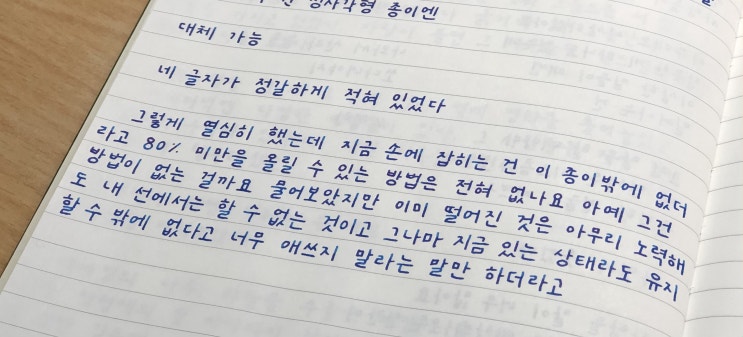 정사각형 종이엔
대체 가능
네 글자가 정갈하게 적혀 있었다
그렇게 열심히 했는데 지금 손에 잡히는 건 이 종이밖에 없더
라고 80% 미만을 올릴 수 있는 방법은 전혀 없나요 아예 그런
방법이 없는 걸까요 물어보았지만 이미 떨어진 것은 아무리 노력해
도 내 선에서는 할 수 없는 것이고 그나마 지금 있는 상태라도 유지
할 수 밖에 없다고 너무 애쓰지 말라는 말만 하더라고